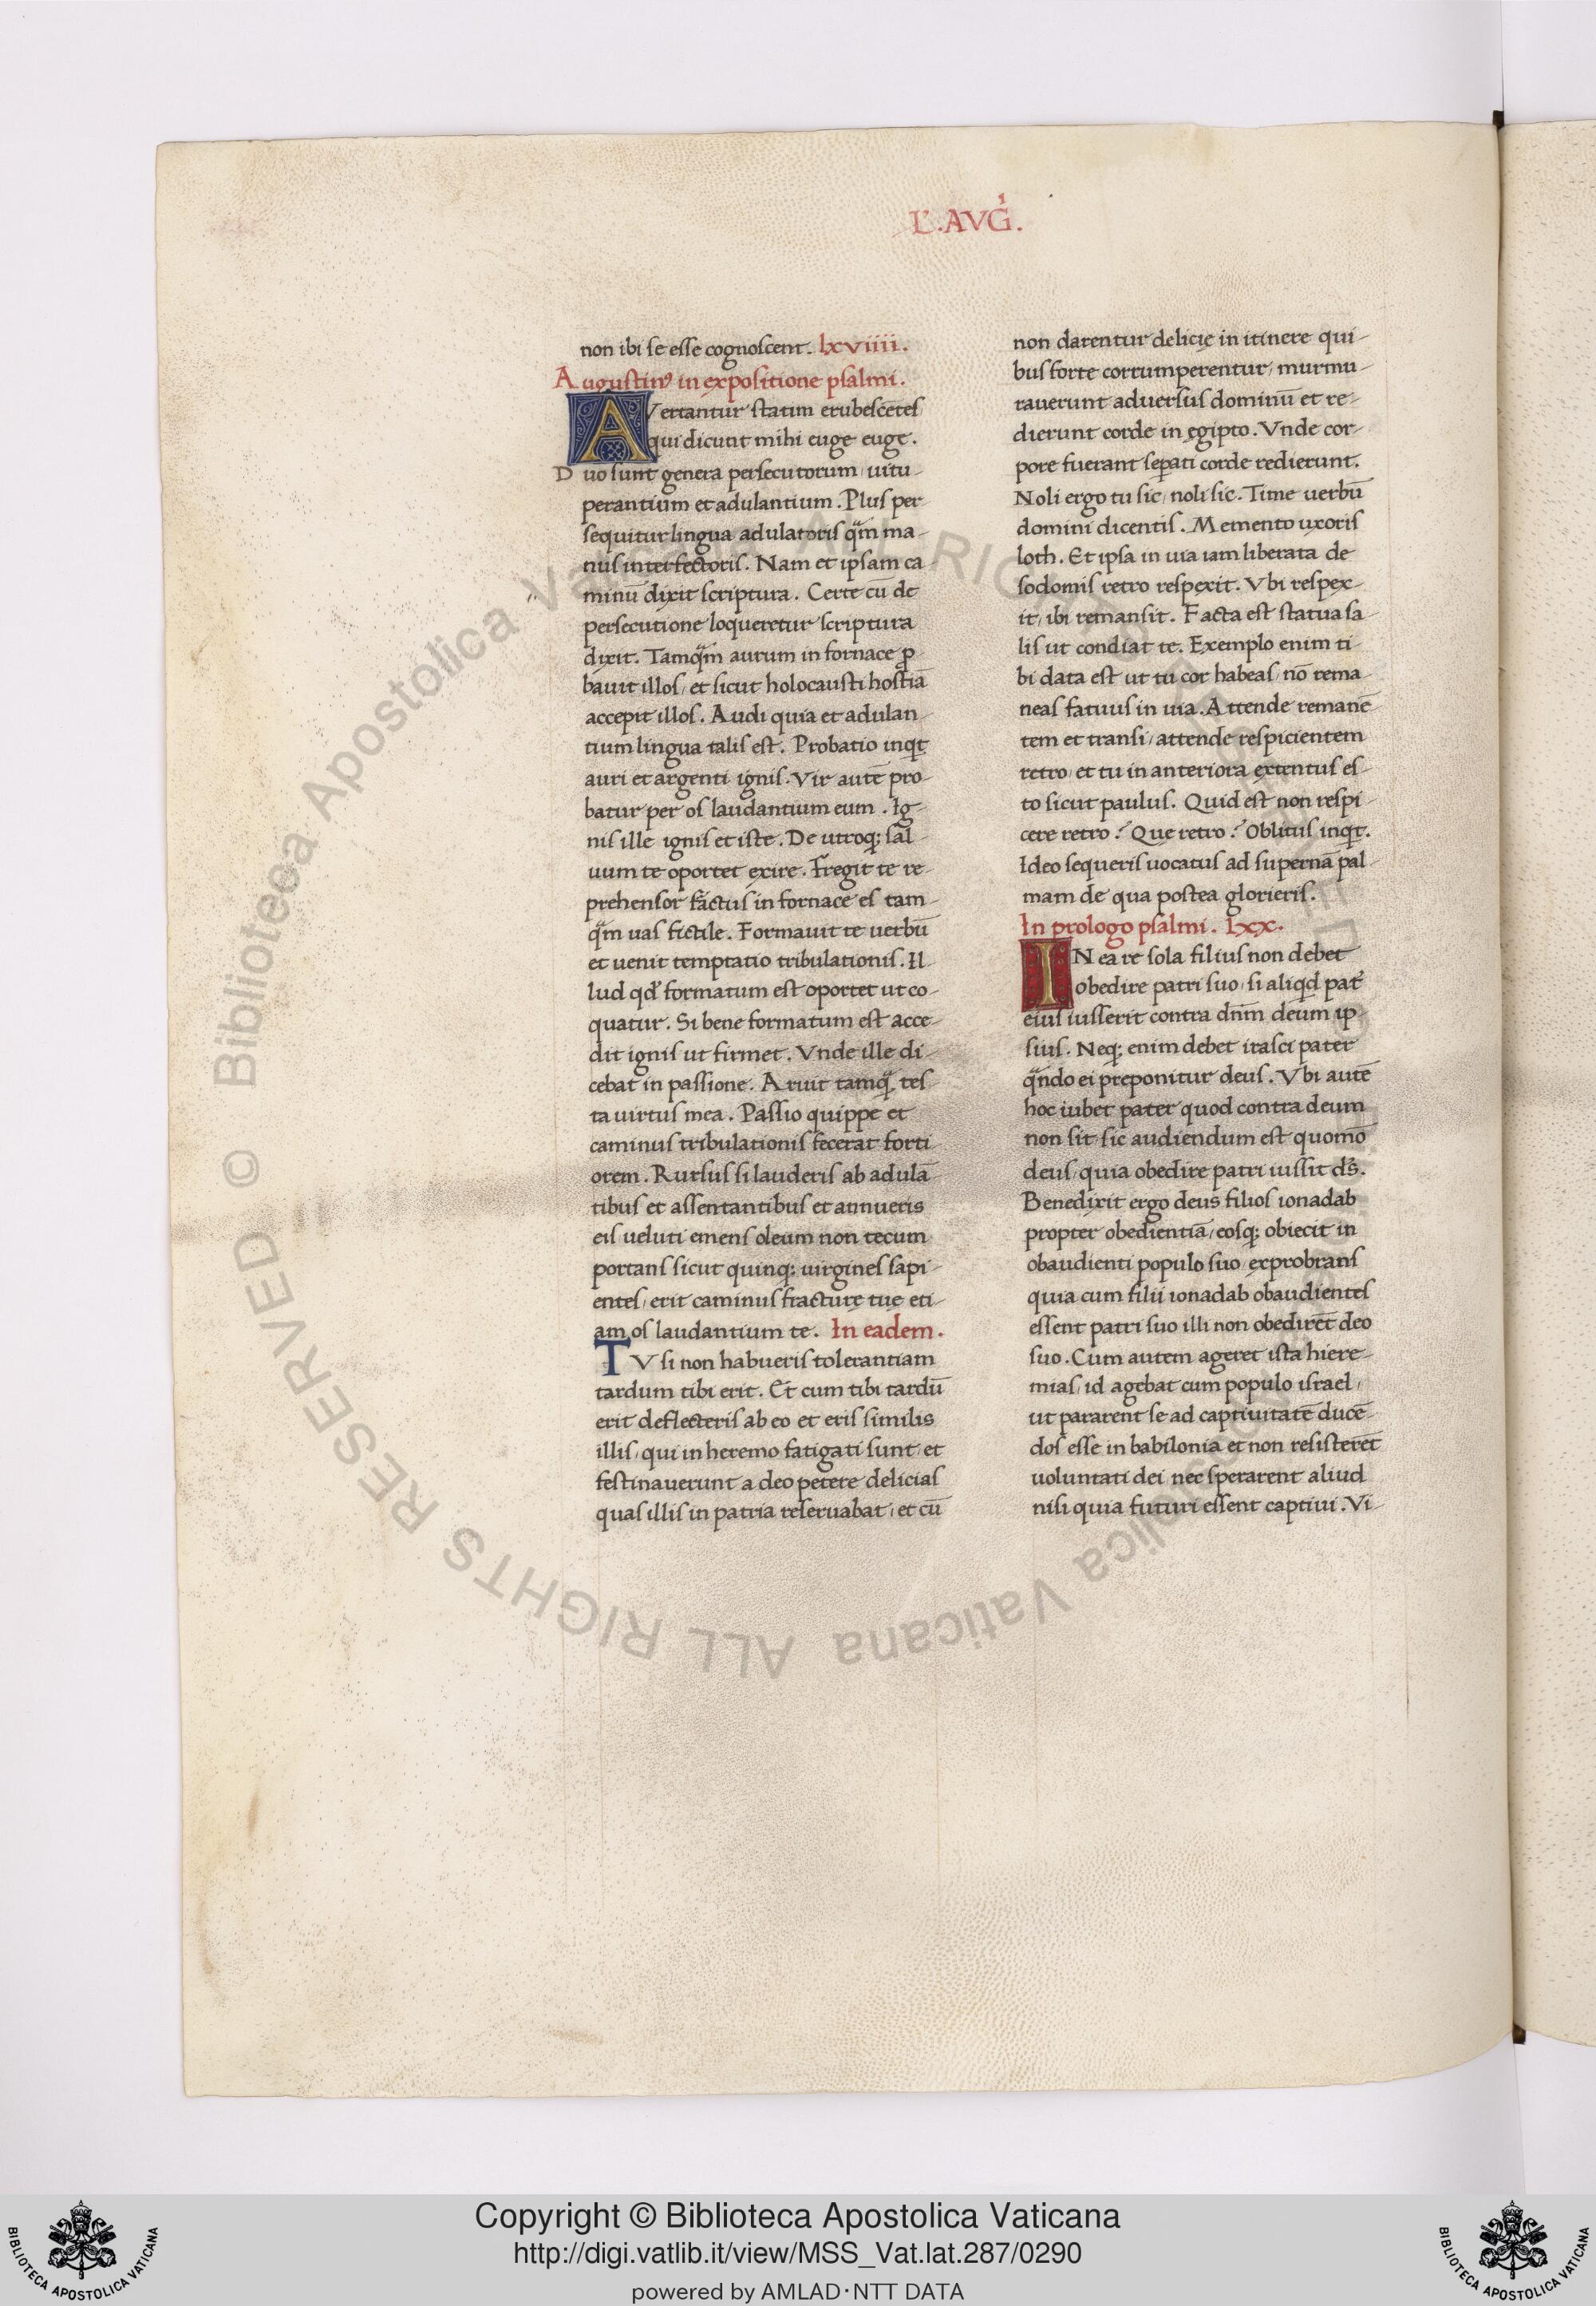 L'. AVG̓.
non ibi se esse cognoscent. lxviiii.
Augustin⁹ in expositione psalmi.
AVertantur statim erubescētes
qui dicunt mihi euge euge.
Duo sunt genera persecutorum / uitu-
perantium et adulantium. Plus per-
sequitur lingua adulatoris qᷓm ma-
nus interfectoris. Nam et ipsam ca-
minū dixit scriptura. Certe cū de
persecutione loqueretur scriptura
dixit. Tamqᷓm aurum in fornace ꝓ
bauit illos / et sicut holocausti hostiā
accepit illos. Audi quia et adulan-
tium lingua talis est. Probatio inqt
auri et argenti ignis. Vir autē pro-
batur per os laudantium eum. Ig-
nis ille ignis et iste. De utroq; sal-
uum te oportet exire. Fregit te re-
prehensor factus in fornace es tam-
qᷓm uas fictile. Formauit te uerbū
et uenit temptatio tribulationis. Il-
lud qd̓ formatum est oportet ut co-
quatur. Si bene formatum est acce-
dit ignis ut firmet. Vnde ille di-
cebat in passione. Aruit tamqᷓ tes-
ta uirtus mea. Passio quippe et
caminus tribulationis fecerat forti-
orem. Rursus si lauderis ab adulā
tibus et assentantibus et annueris
eis ueluti emens oleum non tecum
portans sicut quinq; uirgines sapi-
entes / erit caminus fracturę tuę eti-
am os laudantium te. In eadem.
TV si non habueris tolerantiam
tardum tibi erit. Et cum tibi tardū
erit deflecteris ab eo et eris similis
illis / qui in heremo fatigati sunt et
festinauerunt a deo petere delicias
quas illis in patria reseruabat / et cū
non darentur delicię in itinere qui-
bus forte corrumperentur / murmu-
rauerunt aduersus dominū et re-
dierunt corde in ęgipto. Vnde cor-
pore fuerant seꝑati corde redierunt.
Noli ergo tu sic / noli sic. Time uerbū
domini dicentis. Memento uxoris
loth. Et ipsa in uia iam liberata de
sodomis retro respexit. Vbi respex-
it / ibi remansit. Facta est statua sa-
lis ut condiat te. Exemplo enim ti-
bi data est ut tu cor habeas / nō rema-
neas fatuus in uia. Attende remanē
tem et transi / attende respicientem
retro / et tu in anteriora extentus es-
to sicut paulus. Quid est non respi-
cere retro? Quę retro? Oblitus inqt.
Ideo sequeris uocatus ad supernā pal-
mam de qua postea glorieris.
In prologo psalmi. lxx.
IN ea re sola filius non debet
obedire patri suo / si aliqd pat̓
eius iusserit contra dn̄m deum ip-
sius. Neq; enim debet irasci pater
qᷓndo ei preponitur deus. Vbi autē
hoc iubet pater quod contra deum
non sit sic audiendum est quomō
deus / quia obedire patri iussit ds̄.
Benedixit ergo deus filios ionadab
propter obedientiā / eosq; obiecit in
obaudienti populo suo / exprobrans
quia cum filii ionadab obaudientes
essent patri suo illi non obedirēt deo
suo. Cum autem ageret ista hiere-
mias / id agebat cum populo israel /
ut pararent se ad captiuitatē ducē-
dos esse in babilonia et non resisterēt
uoluntati dei nec sperarent aliud
nisi quia futuri essent captiui. Vi-
© Biblioteca Apostolica Vaticana ALL RIGHTS RESERVED © Biblioteca Apostolica Vaticana ALL RIGHTS RESERVED
BIBLIOTECA APOSTOLICA VATICANA
Copyright © Biblioteca Apostolica Vaticana
http://digi.vatlib.it/view/MSS_Vat.lat.287/0290
powered by AMLAD·NTT DATA
BIBLIOTECA APOSTOLICA VATICANA